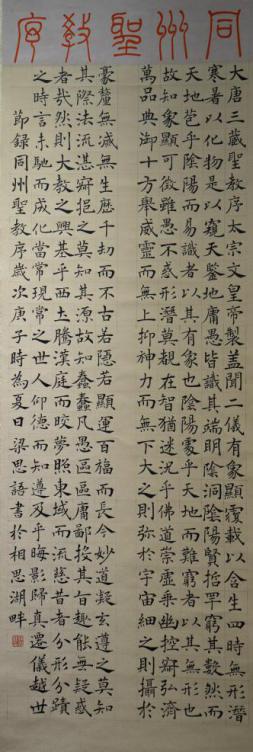 同州聖教序
大唐三藏聖教序太宗文皇帝製蓋聞二儀有象顯覆載以含生四時無形潛
寒暑以化物是以窺天鑒地庸愚皆識其端明陰洞陰陽賢哲罕窮其數然而
天地苞乎陰陽而易識者以其有象也陰陽處乎天地而難窮者以其無形也
故知象顯可徵雖愚不惑形潛莫覩在智猶迷況乎佛道崇虛乘幽控寂弘濟
萬品典御十方舉威靈而無上抑神力而無下大之則弥於宇宙細之則攝於
豪釐無滅無生歷千劫而不古若隱若顯運百福而長今妙道凝玄遵之莫知
其際法流湛寂挹之莫知其源故知蠢蠢凡愚區區庸鄙投其旨趣能無疑惑
者哉然則大教之興基乎西土騰漢庭而皎夢照東域而流慈昔者分形分蹟
之時言未馳而成化當常現常之世人仰德而知遵及乎晦影歸真遷儀越世
節録同州聖教序歲次庚子時為夏日梁思語書於相思湖畔